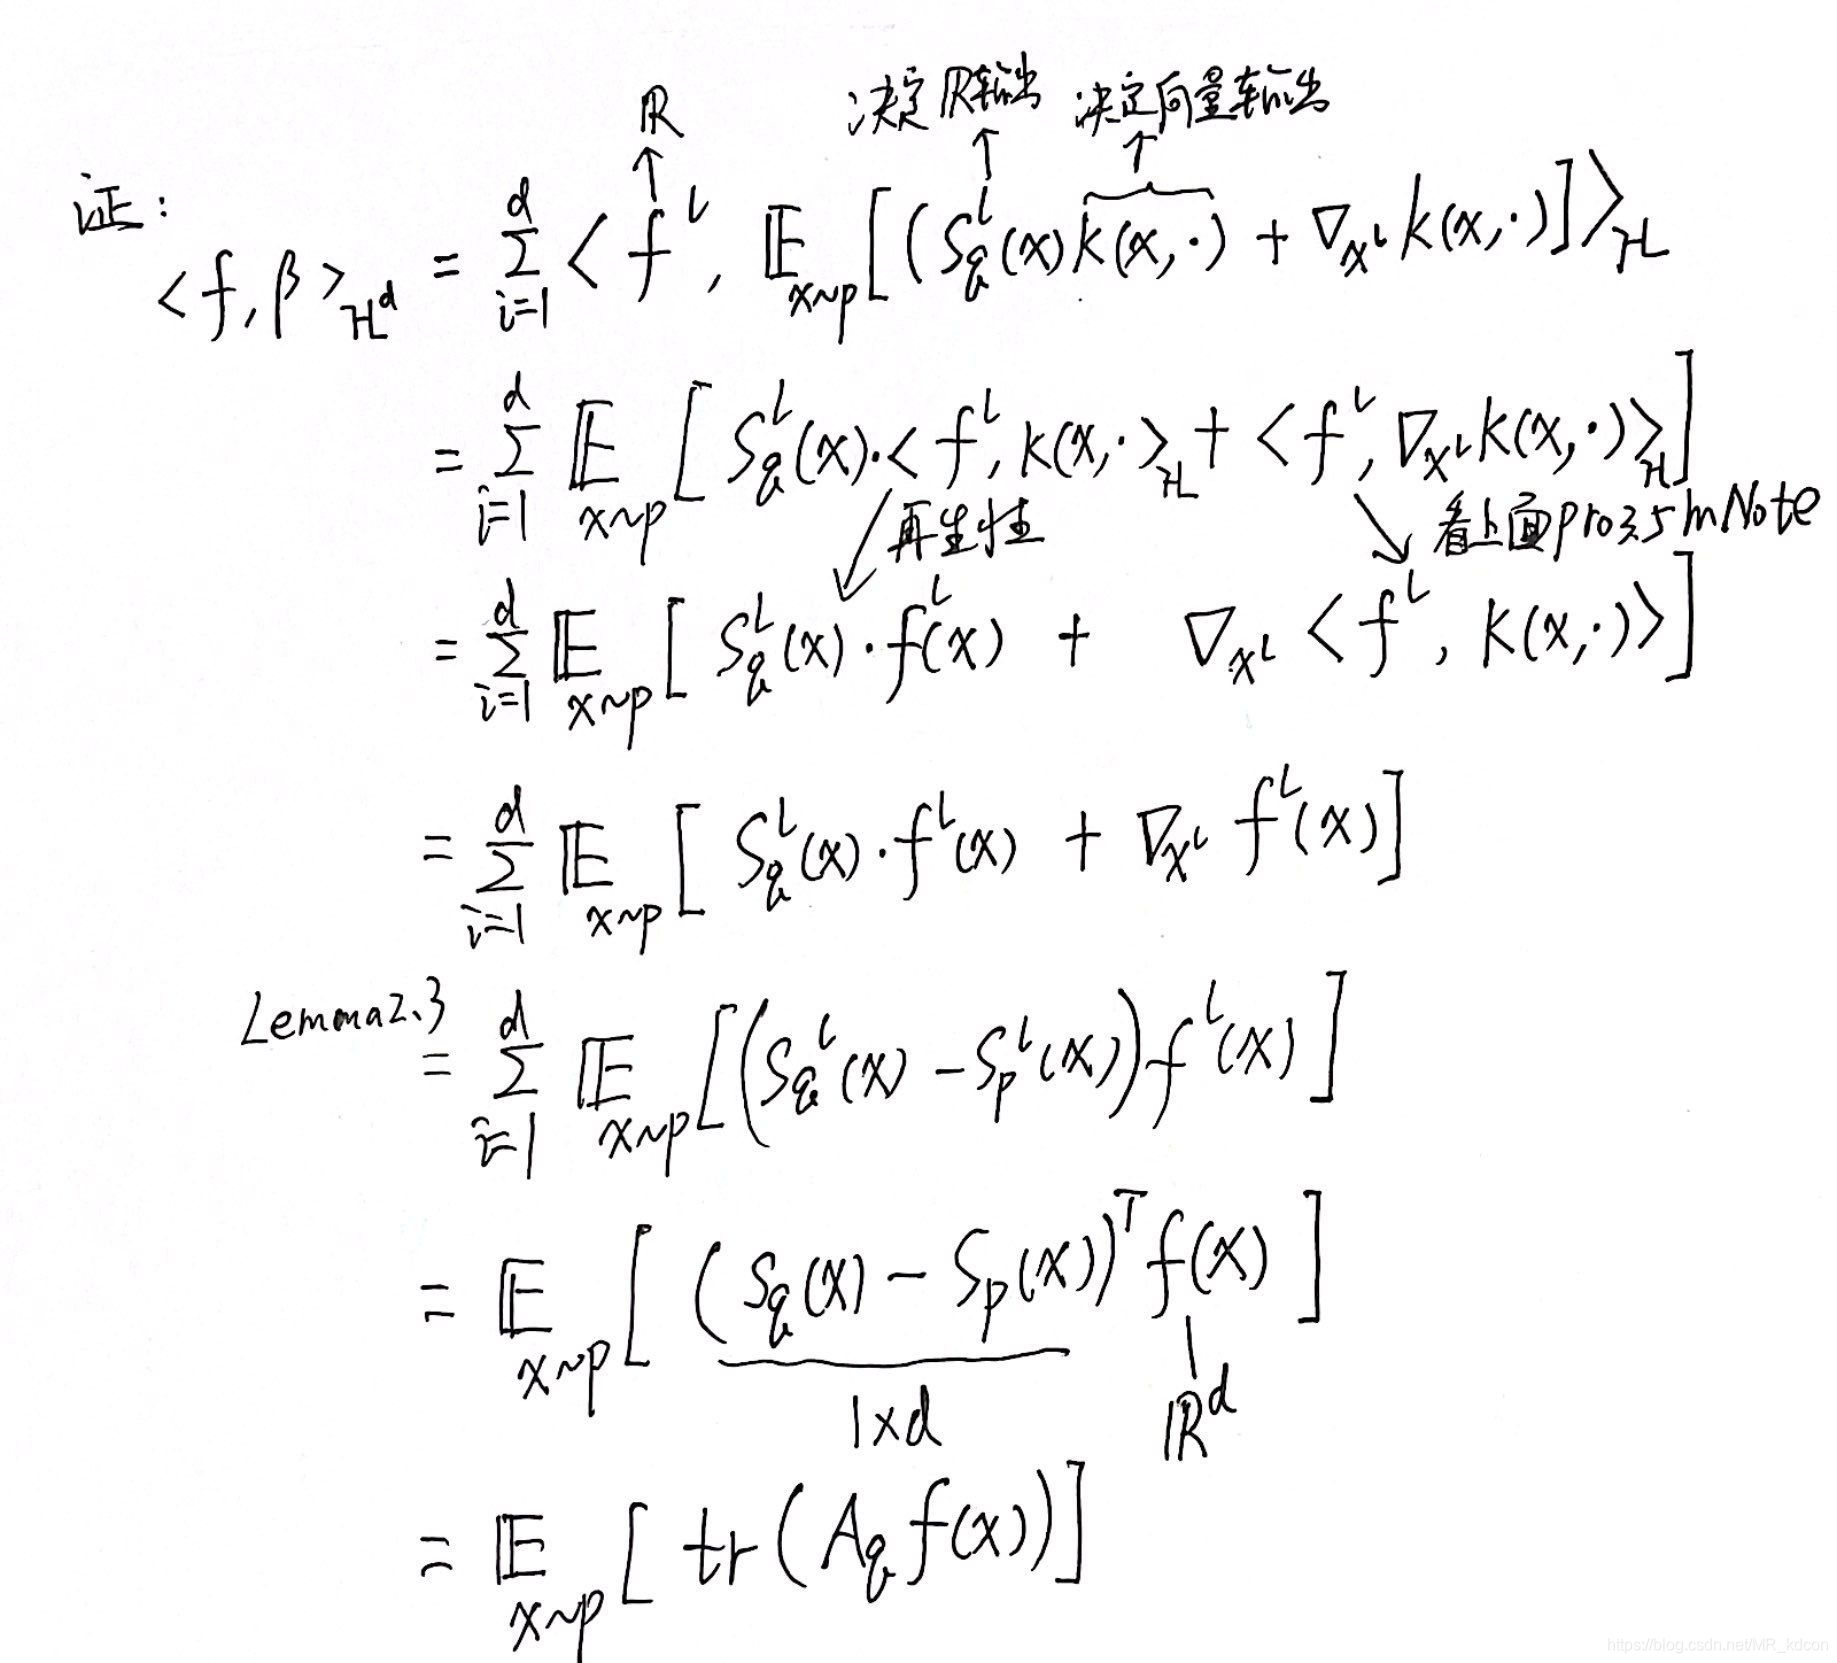 ℝ 决定ℝ输出 决定向量输出
证:
<f, β>_{H^d} = \sum_{i=1}^{d} < f^l, 𝔼_{x~p} [ (S_q^l(x) k(x,·) + ∇_{x^l} k(x,·) ] >_H
= \sum_{i=1}^{d} 𝔼_{x~p} [ S_q^l(x)·< f^l, k(x,· >_H + < f^l, ∇_{x^l} k(x,·) >_H ]
再生性 看上面pro3.5 in Note
= \sum_{i=1}^{d} 𝔼_{x~p} [ S_q^l(x)·f^l(x) + ∇_{x^l} < f^l, k(x,·) > ]
= \sum_{i=1}^{d} 𝔼_{x~p} [ S_q^l(x)·f^l(x) + ∇_{x^l} f^l(x) ]
Lemma2.3 = \sum_{i=1}^{d} 𝔼_{x~p} [ (S_q^l(x) - S_p^l(x)) f^l(x) ]
= 𝔼_{x~p} [ (S_q(x) - S_p(x))^T f(x) ]
1×d ℝ^d
= 𝔼_{x~p} [ tr(A_q f(x)) ]
https://blog.csdn.net/MR_kdcon